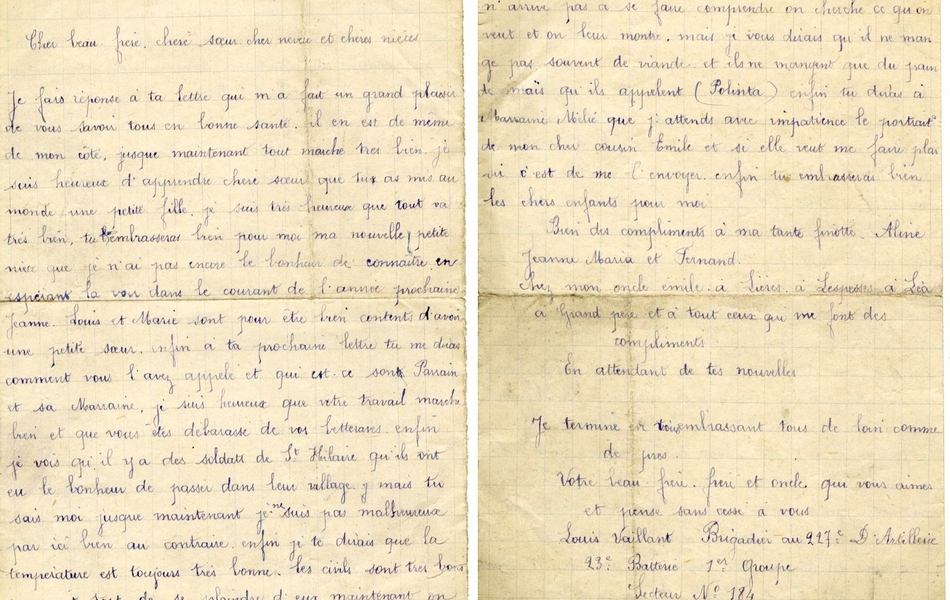 Cher beau frère. cheré sœur cher neveu et chères nièces
Je fais réponse à ta lettre qui m'a fait un grand plaisir
de vous savoir tous en bonne santé. il en est de même
de mon côté. jusque maintenant tout marche très bien. je
suis heureux d'apprendre cheré sœur que tu as mis au
monde une petite fille. je suis très heureux que tout va
très bien, tu embrasseras bien pour moi ma nouvelle petite
nièce que je n'ai pas encore le bonheur de connaitre en
espérant la voir dans le courant de l'année prochaine
Jeanne. Louis et Marie sont pour être bien contents d'avoir
une petite sœur. enfin à ta prochaine lettre tu me diras
comment vous l'avez appelé et qui est-ce sont Parrain
et sa Marraine, je suis heureux que votre travail marche
bien et que vous êtes débarasse de vos betteraves enfin
je vois qu'il y a des soldats de St Hilaire qu'ils ont
eu le bonheur de passer dans leur village. mais tu
sais moi jusque maintenant je ne suis pas malheureux
par ici bien au contraire. enfin je te dirais que la
température est toujours très bonne. les civils sont très bons
de se plaindre d'eux maintenant on
n'arrive pas à se faire comprendre on cherche ce qu'on
veut et on leur montre. mais je vous dirais qu'il ne man
ge pas souvent de viande. et ils ne mangent que du pain
de maïs qu'ils appelent (Polinta) enfin tu diras à
Marraine Mélié que j'attends avec impatience le portrait
de mon cher cousin Emile et si elle veut me faire plai
sir c'est de me l'envoyer. enfin tu embrasseras bien
les chers enfants pour moi
Bien des compliments à ma tante finotte. Aline
Jeanne Maria et Fernand.
Chez mon oncle emile. à Lières. à Lespesses. à Léa
à Grand père et à tout ceux qui me font des
compliments.
En attendant de tes nouvelles
Je termine en vous embrassant tous de loin comme
de près.
Votre beau-frère. frère et oncle qui vous aimes
et pense sans cesse à vous
Louis Vaillant Brigadier au 227e D'Artillerie
23e Batterie 1er Groupe
Secteur No 184